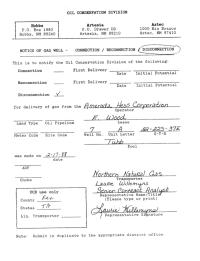 OIL CONSERVATION DIVISION
Hobbs
P.O. Box 1980
Hobbs, NM 88240
Artesia
P.O. Drawer DD
Artesia, NM 88210
Aztec
1000 Rio Brazos
Aztec, NM 87410
NOTICE OF GAS WELL - CONNECTION / RECONNECTION / DISCONNECTION
This is to notify the Oil Conservation Division of the following:
Connection First Delivery
Date Initial Potential
Reconnection First Delivery
Date Initial Potential
Disconnection ✓
for delivery of gas from the Amerada Hess Corporation
Operator
E. Wood
Lease
Land Type Oil Pipeline
7 A
Meter Code Site Code Well No. Unit Letter S-T-R
Tubb
Pool
was made on 2-17-88
date
AOF
Choke
Northern Natural Gas
Transporter
OCD use only
County
State
Liq. Transporter
Senior Contract Analyst
Representative Name/Title
(Please type or print)
Representative Signature
Note: Submit in duplicate to the appropriate district office